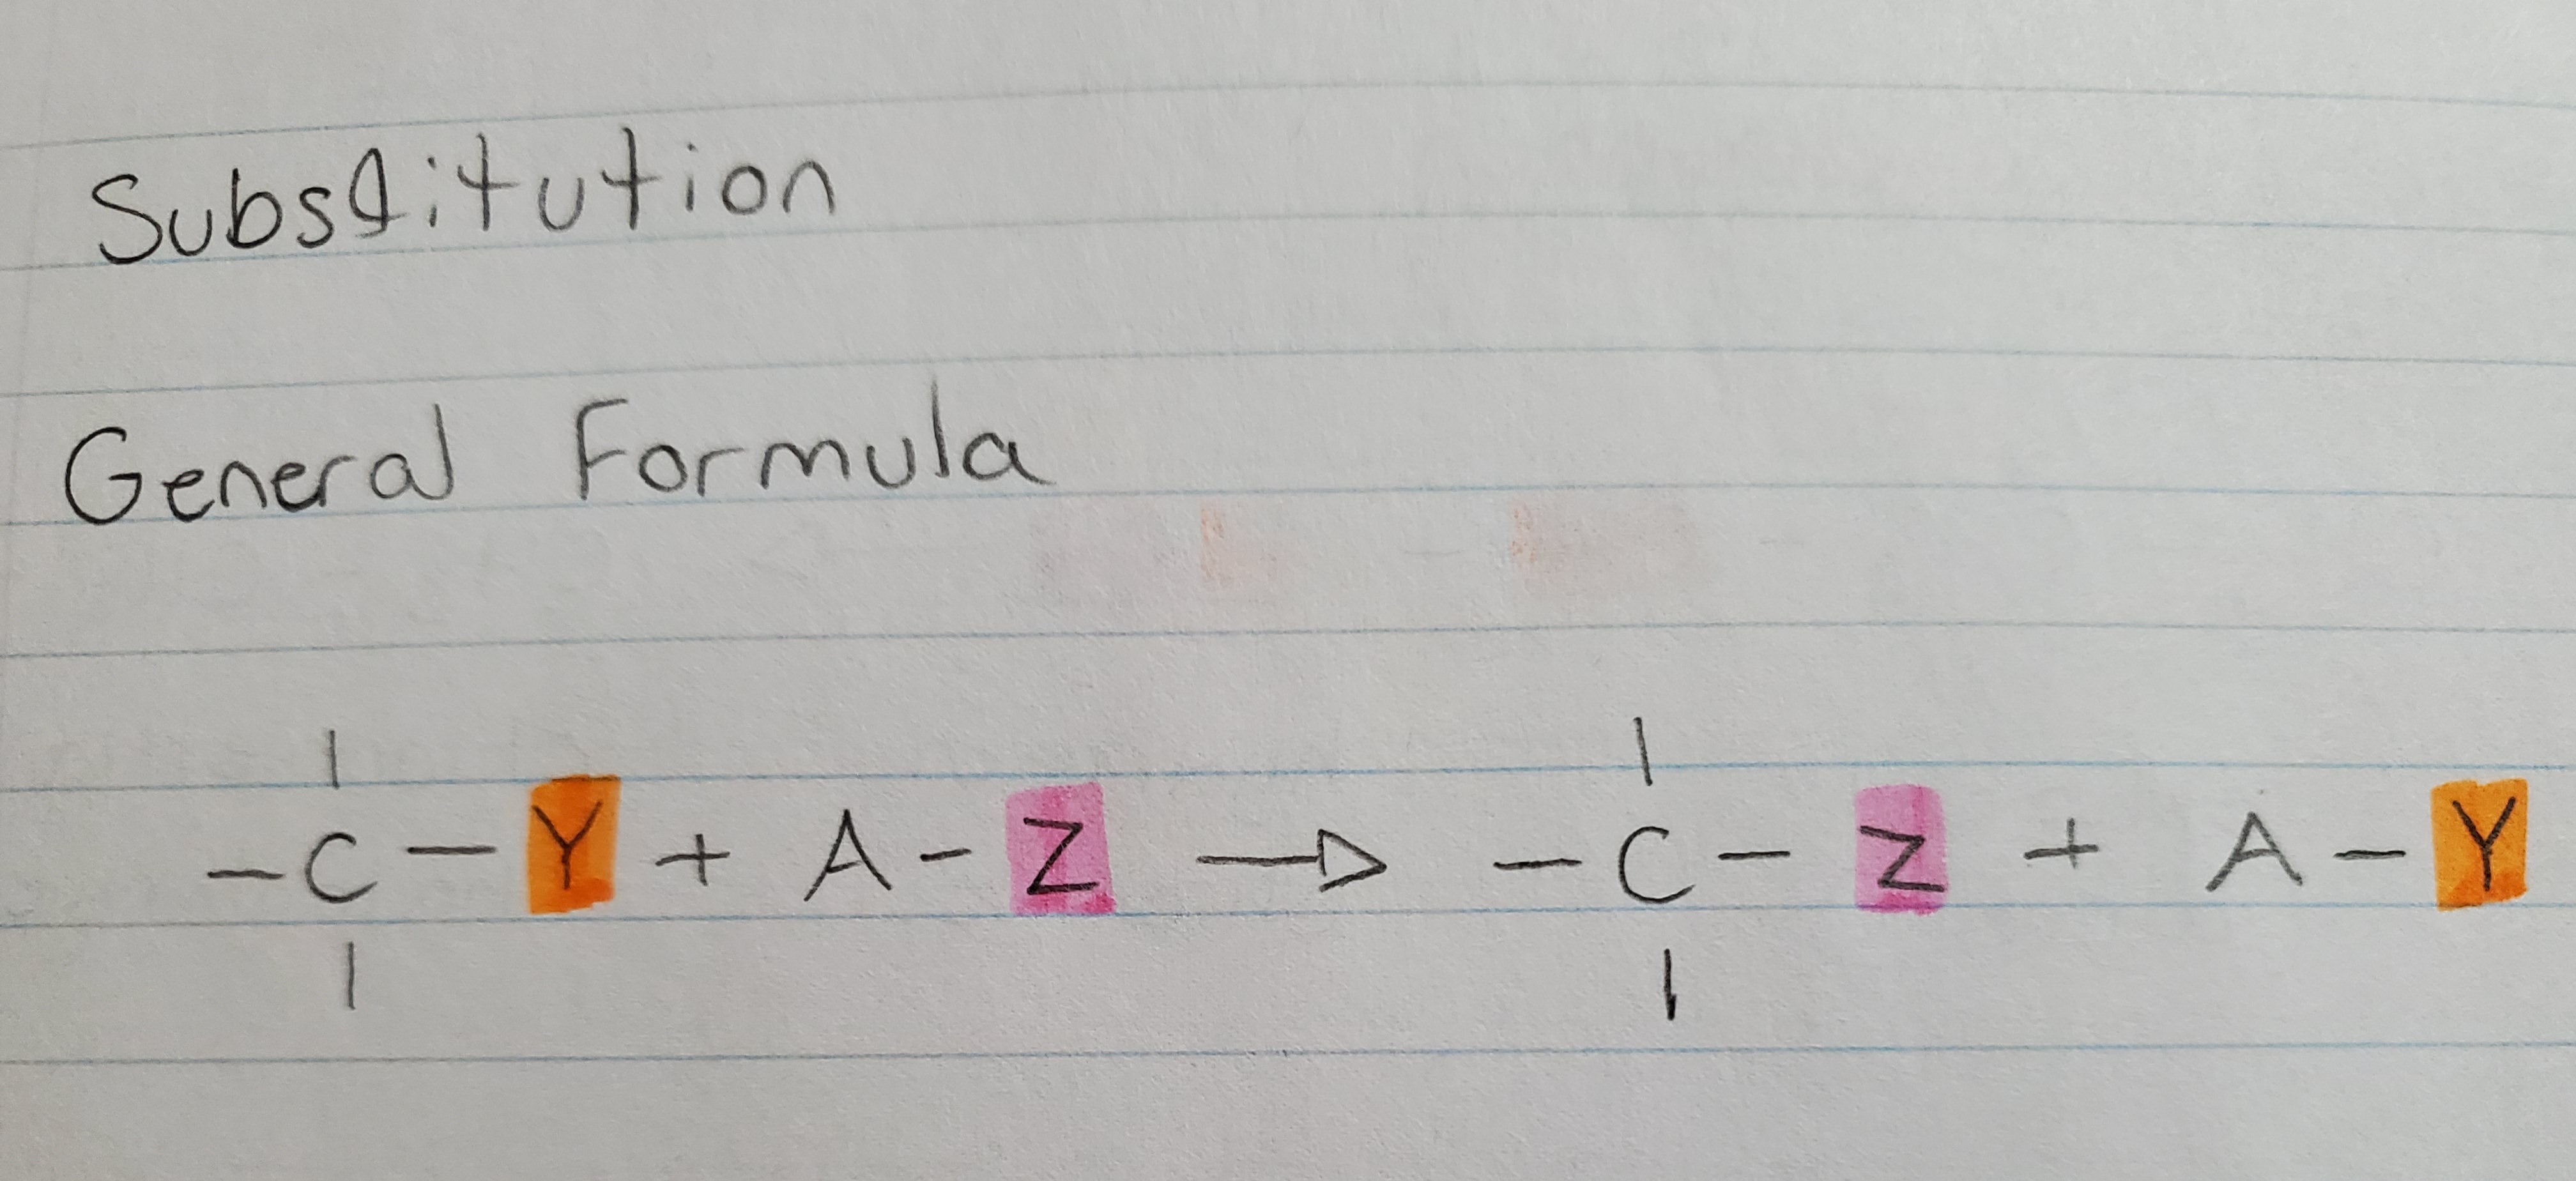 Substitution
General Formula
| |
-C-Y + A-Z → -C-Z + A-Y
| |